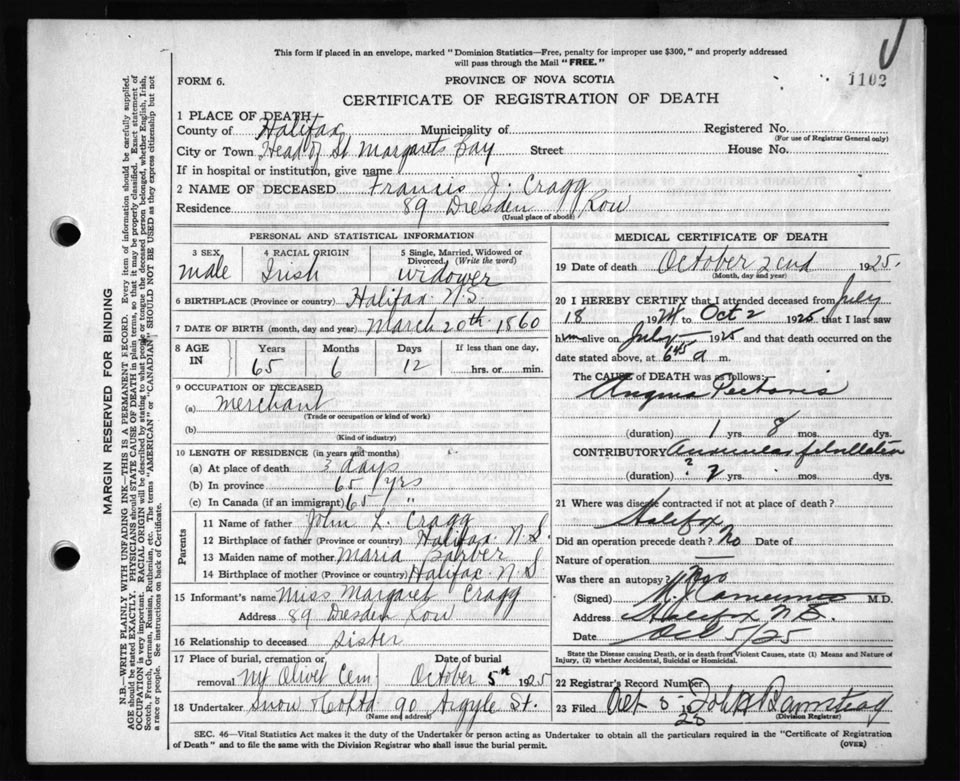 This form if placed in an envelope, marked "Dominion Statistics—Free, penalty for improper use $300," and properly addressed
will pass through the Mail "FREE."
1102
FORM 6.
PROVINCE OF NOVA SCOTIA
CERTIFICATE OF REGISTRATION OF DEATH
1 PLACE OF DEATH
County of Halifax Municipality of Registered No.
(For use of Registrar General only)
City or Town Head of St Margarets Bay Street House No.
If in hospital or institution, give name
2 NAME OF DECEASED Francis J. Cragg
Residence 89 Dresden Row
(Usual place of abode)
PERSONAL AND STATISTICAL INFORMATION
3 SEX
male
4 RACIAL ORIGIN
Irish
5 Single, Married, Widowed or
Divorced. (Write the word)
widower
6 BIRTHPLACE (Province or country) Halifax N.S.
7 DATE OF BIRTH (month, day and year) March 20th 1860
8 AGE IN
Years Months Days If less than one day,
65 6 12 hrs. or min.
9 OCCUPATION OF DECEASED
(a) merchant
(Trade or occupation or kind of work)
(b)
(Kind of industry)
10 LENGTH OF RESIDENCE (in years and months)
(a) At place of death 3 days
(b) In province 65 yrs
(c) In Canada (if an immigrant) 65 "
Parents
11 Name of father John L. Cragg
12 Birthplace of father (Province or country) Halifax N.S.
13 Maiden name of mother Maria Barber
14 Birthplace of mother (Province or country) Halifax N.S
15 Informant's name Miss Margaret Cragg
Address 89 Dresden Row
16 Relationship to deceased sister
17 Place of burial, cremation or Date of burial
removal Mt Olivet Cem October 5th 1925
18 Undertaker Snow & Co Ltd 90 Argyle St.
(Name and address)
MEDICAL CERTIFICATE OF DEATH
19 Date of death October 2cnd 1925.
(Month, day and year)
20 I HEREBY CERTIFY that I attended deceased from July
18 1924 to Oct 2 1925 that I last saw
him alive on July 1925 and that death occurred on the
date stated above, at 6 45 a m.
The CAUSE OF DEATH was as follows:
Angina Pectoris
(duration) 1 yrs. 8 mos. dys.
CONTRIBUTORY
(duration) ? 2 yrs. mos. dys.
21 Where was disease contracted if not at place of death?
Halifax
Did an operation precede death? No Date of
Nature of operation
Was there an autopsy? No
(Signed) M.D.
Address Halifax N.S.
Date Oct 5/25
State the Disease causing Death, or in death from Violent Causes, state (1) Means and Nature of
Injury, (2) whether Accidental, Suicidal or Homicidal.
22 Registrar's Record Number
23 Filed Oct 5 25
(Division Registrar)
SEC. 46—Vital Statistics Act makes it the duty of the Undertaker or person acting as Undertaker to obtain all the particulars required in the "Certificate of Registration
of Death" and to file the same with the Division Registrar who shall issue the burial permit.
(OVER)
MARGIN RESERVED FOR BINDING
N.B.—WRITE PLAINLY WITH UNFADING INK—THIS IS A PERMANENT RECORD. Every item of information should be carefully supplied.
AGE should be stated EXACTLY. PHYSICIANS should STATE CAUSE OF DEATH in plain terms, so that it may be properly classified. Exact statement of
OCCUPATION is very important. RACIAL ORIGIN will be described by stating to what people or tongue the deceased person belonged, whether English, Irish,
Scotch, French, German, Russian, Ruthenian, etc. The terms "AMERICAN" or "CANADIAN" SHOULD NOT BE USED as they express citizenship but not
a race or people. See instructions on back of Certificate.